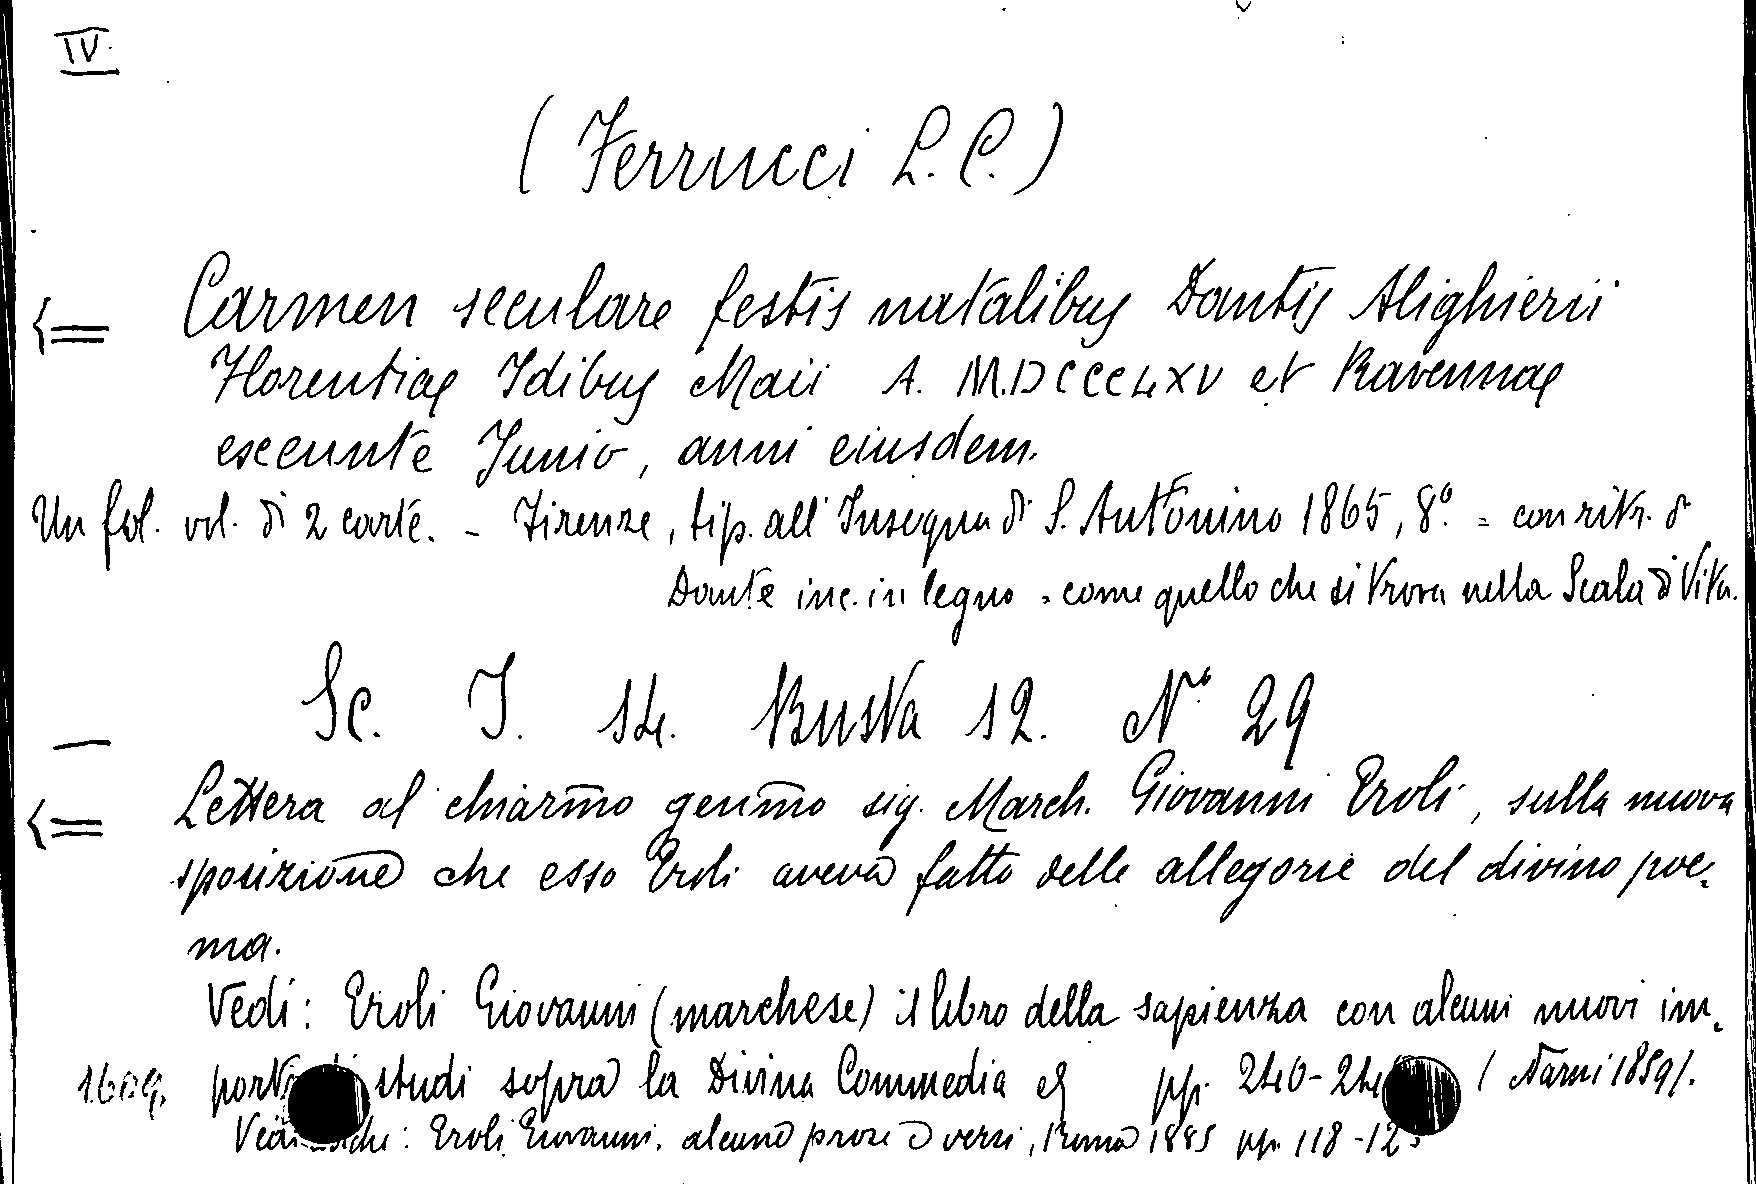 IV
(Ferrucci L. C.)
Carmen seculare festis natalibus Dantis Alighierii
Florentiae Idibus Maii A. MDCCCLXV et Ravennae
exeunte Junio, anni eiusdem.
Un fol. vol. di 2 carte. - Firenze, tip. all'Insegna di S. Antonino 1865, 8.° = con ritr. di
Dante inc. in legno = come quello che si trova nella Scala di Vita.
Sc. I. 14. Busta 12. N° 29
Lettera al chiarmo genmo sig. March. Giovanni Eroli, sulla nuova
sposizione che esso Eroli aveva fatto delle allegorie del divino poe=
ma.
Vedi: Eroli Giovanni (marchese) il libro della sapienza con alcuni nuovi im=
1609. studi sopra la Divina Commedia pp. 240- (Narni 1859).
Eroli Giovanni. alcune prose e versi, Roma 1885 pp. 118-